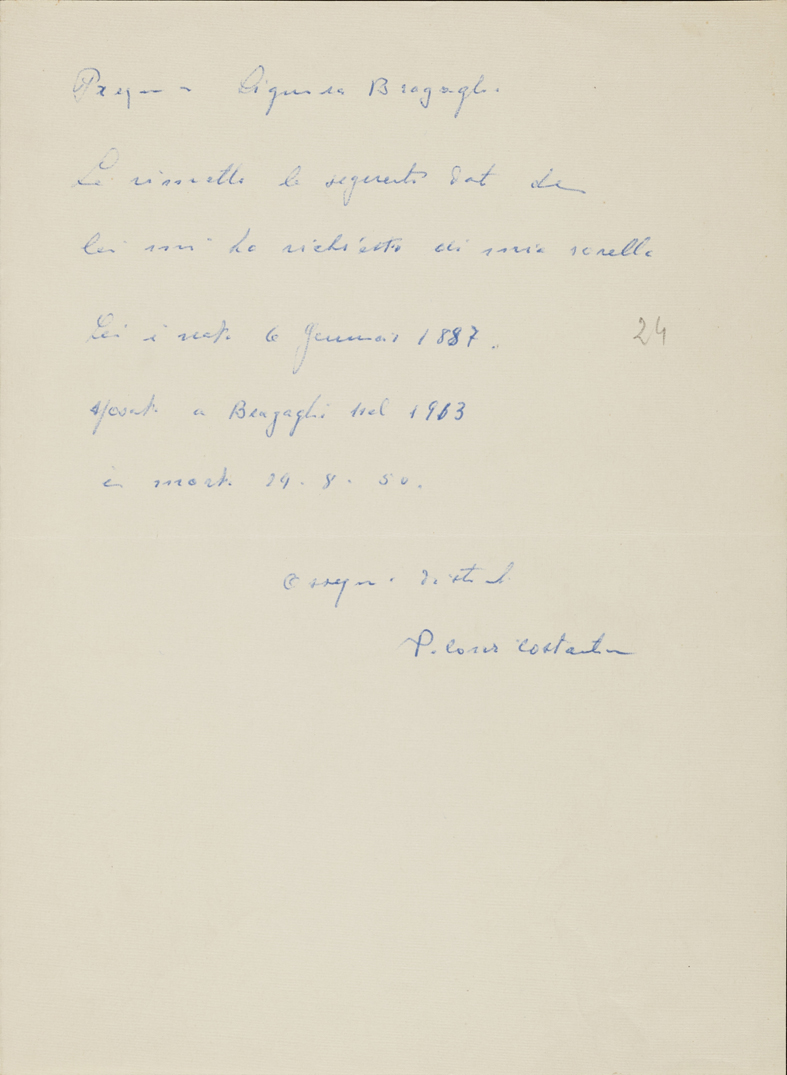 Pregma Signora Bragaglia
Le rimetto le seguenti dati che
lei mi ha richiesto di mia sorella
Lei è nata 6 Gennaio 1887.
24
sposata a Bragaglia nel 1913
è morta 29. 8. 50.
Ossequi distinti
Costantino